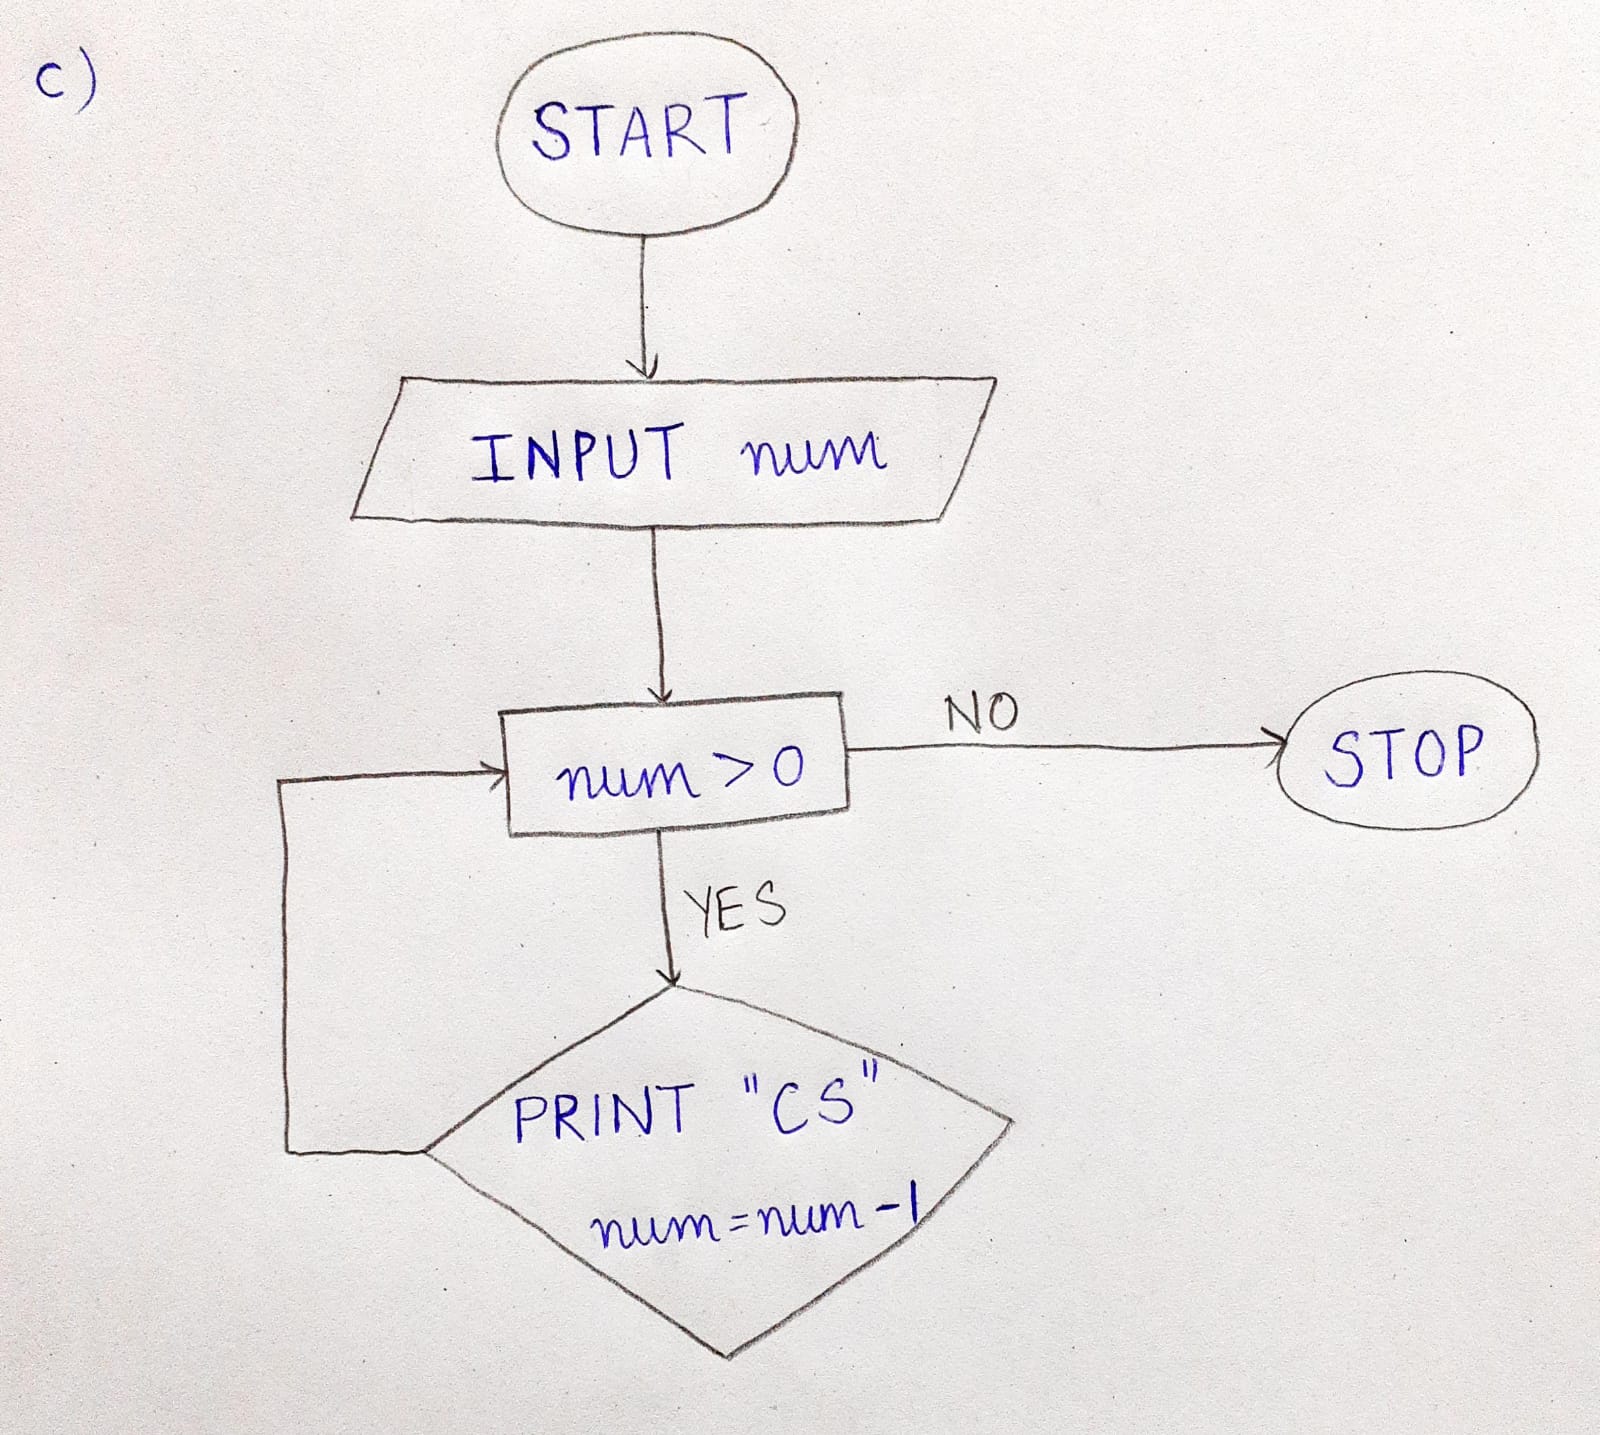 c)
START
INPUT num
num > 0
NO
STOP
YES
PRINT "CS"
num = num - 1